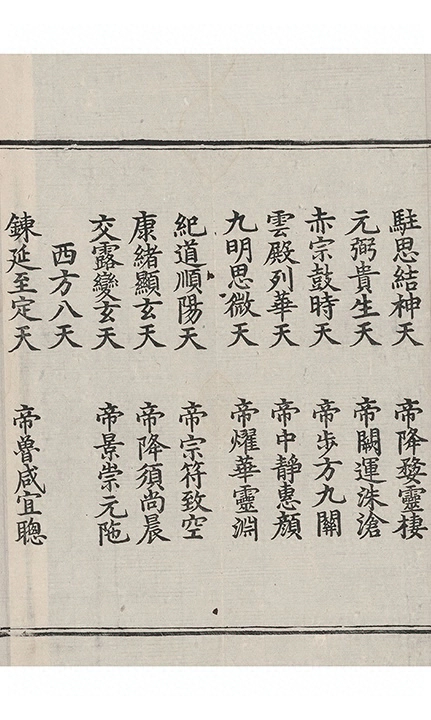 駐思結神天　帝降婺靈棲
元弼貴生天　帝關運洙滄
赤宗鼓時天　帝步方九關
雲殿列華天　帝中靜惠顏
九明思微天　帝燿華靈淵
紀道順陽天　帝宗符致空
康緒顯玄天　帝降須尚晨
交露變玄天　帝景崇元陁
西方八天
鍊延至定天　帝曾咸宜聰